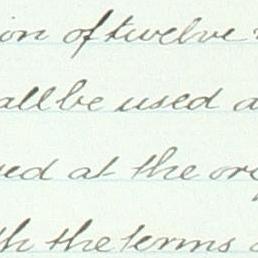 ion of twelve
all be used a
ed at the or
th the terms